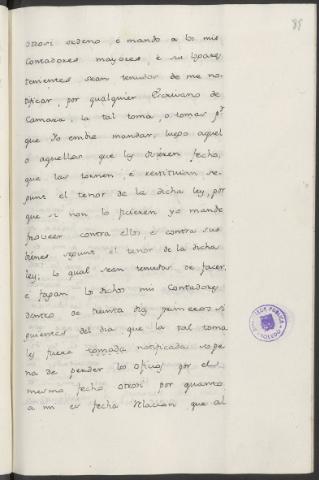 85
otrosi ordeno, e mando a los mis
Contadores mayores, e su lugares
tenientes sean tenudos de me no-
tificar, por qualquier Escrivano de
Camara la tal toma, o tomas pa
que Yo embie mandar, luego aquel
o aquellos que las ovieren fecho,
que las tornen, e restituian se-
gunt el tenor de la dicha ley, por
que si non lo ficieren yo mande
proveer contra ellos e contra sus
bienes segunt el tenor de la dicha
ley, lo qual sean tenudos de facer,
e fagan los dichos mis Contadores
dentro de treinta dias primeros si
guientes del dia que la tal toma
les fuere tomada notificada so pe
na de perder los oficios por el
mesmo fecho otrosi por quanto
a mi es fecha relacion que al
BIBLIOTECA PUBLICA
TOLEDO